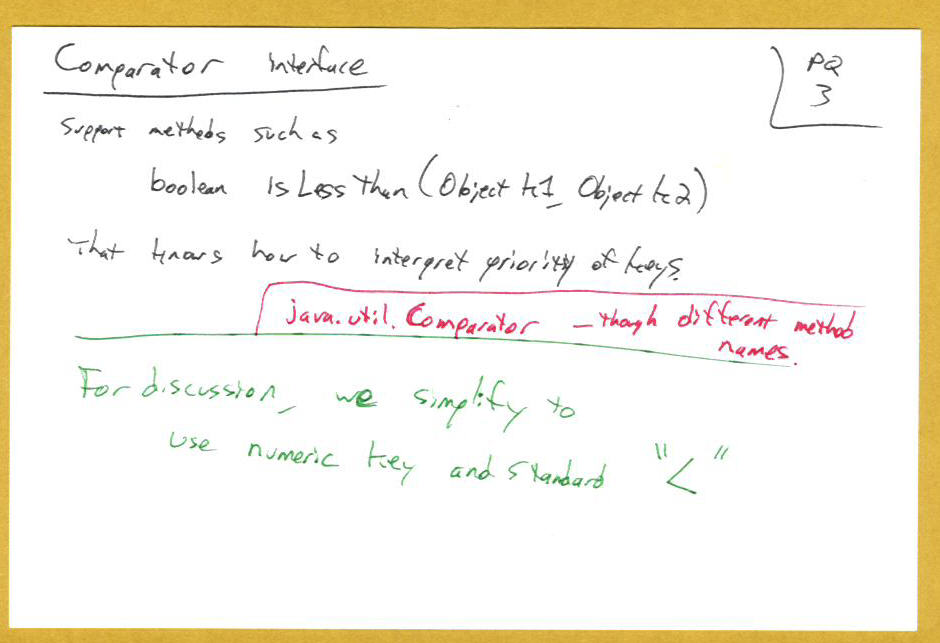 Comparator Interface
PQ
3
Support methods such as
boolean isLessThan(Object k1, Object k2)
that knows how to interpret priority of keys.
java.util.Comparator – though different method
names.
For discussion, we simplify to
use numeric key and standard "<"